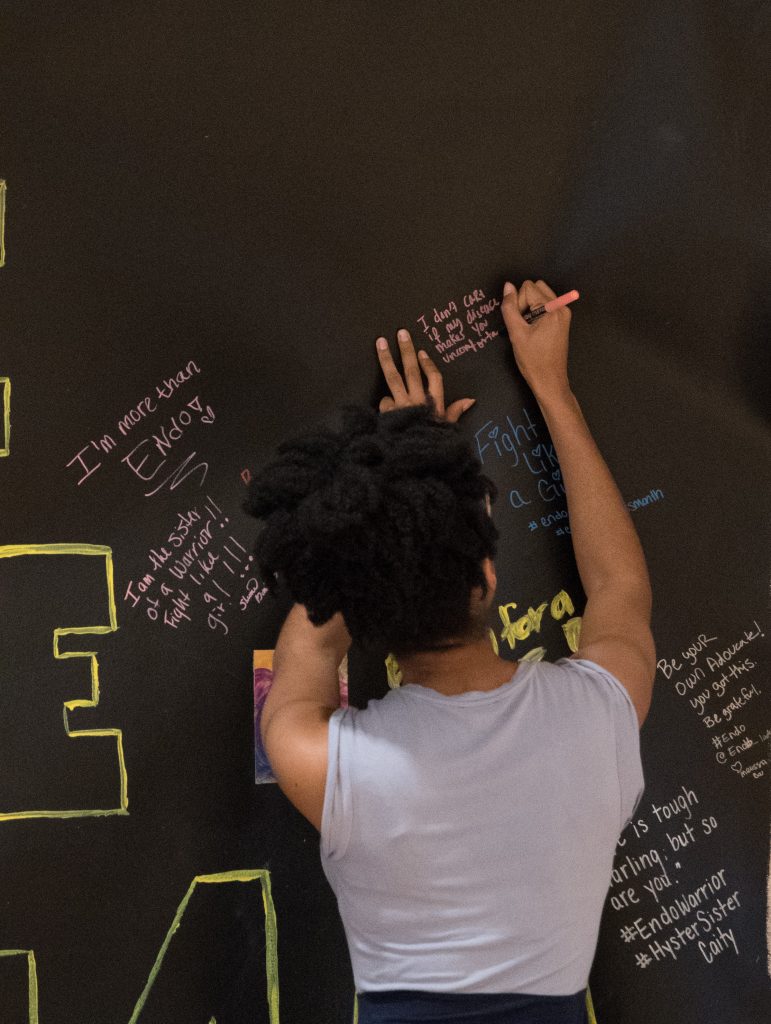 I don't CARE
if my disease
makes you
uncomforta
I'm more than
ENdo!
Fight
Like
a Gi
#endo smonth
I am the sister!!
of a Warrior!!
Fight like
a
girl!!!
E
for a
Be your
own Advocate!
you got this.
Be grateful.
#Endo
is tough
arling, but so
are you."
#EndoWarrior
#HysterSister
Caity
A